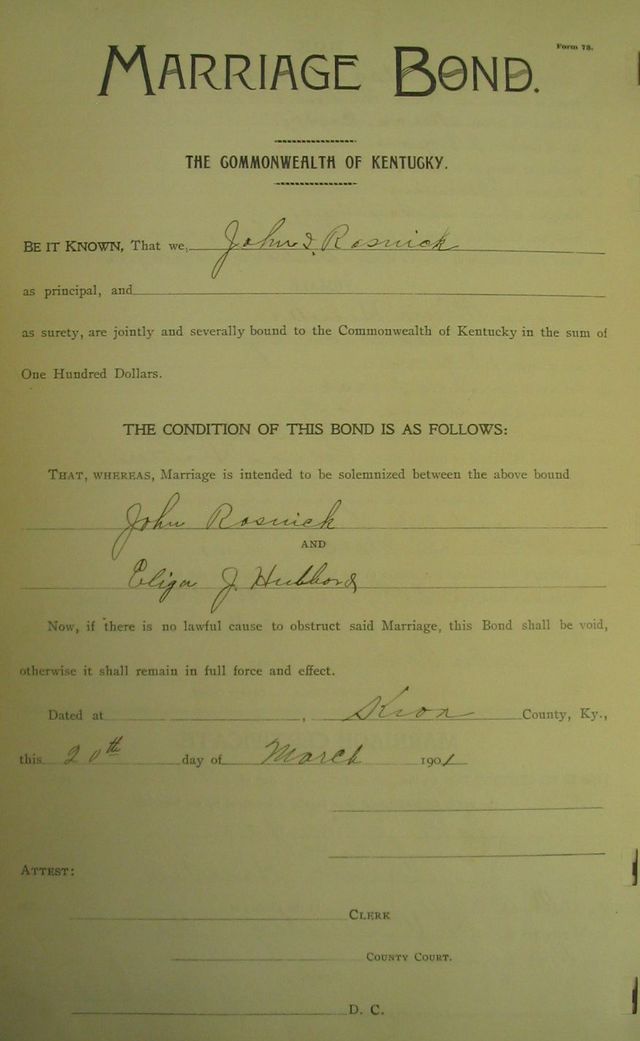 Form 78.
MARRIAGE BOND.
THE COMMONWEALTH OF KENTUCKY.
BE IT KNOWN, That we, John Rosnick
as principal, and
as surety, are jointly and severally bound to the Commonwealth of Kentucky in the sum of
One Hundred Dollars.
THE CONDITION OF THIS BOND IS AS FOLLOWS:
THAT, WHEREAS, Marriage is intended to be solemnized between the above bound
John Rosnick
AND
Eliga J. Hubbard
Now, if there is no lawful cause to obstruct said Marriage, this Bond shall be void,
otherwise it shall remain in full force and effect.
Dated at , Knox County, Ky.,
this 20th day of March 1901
ATTEST:
CLERK
COUNTY COURT.
D. C.